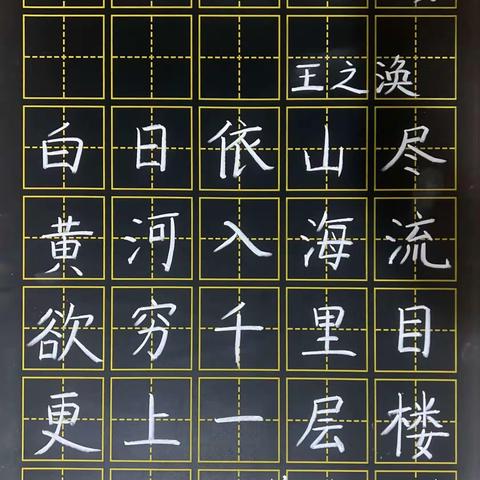 王之涣
白日依山尽
黄河入海流
欲穷千里目
更上一层楼